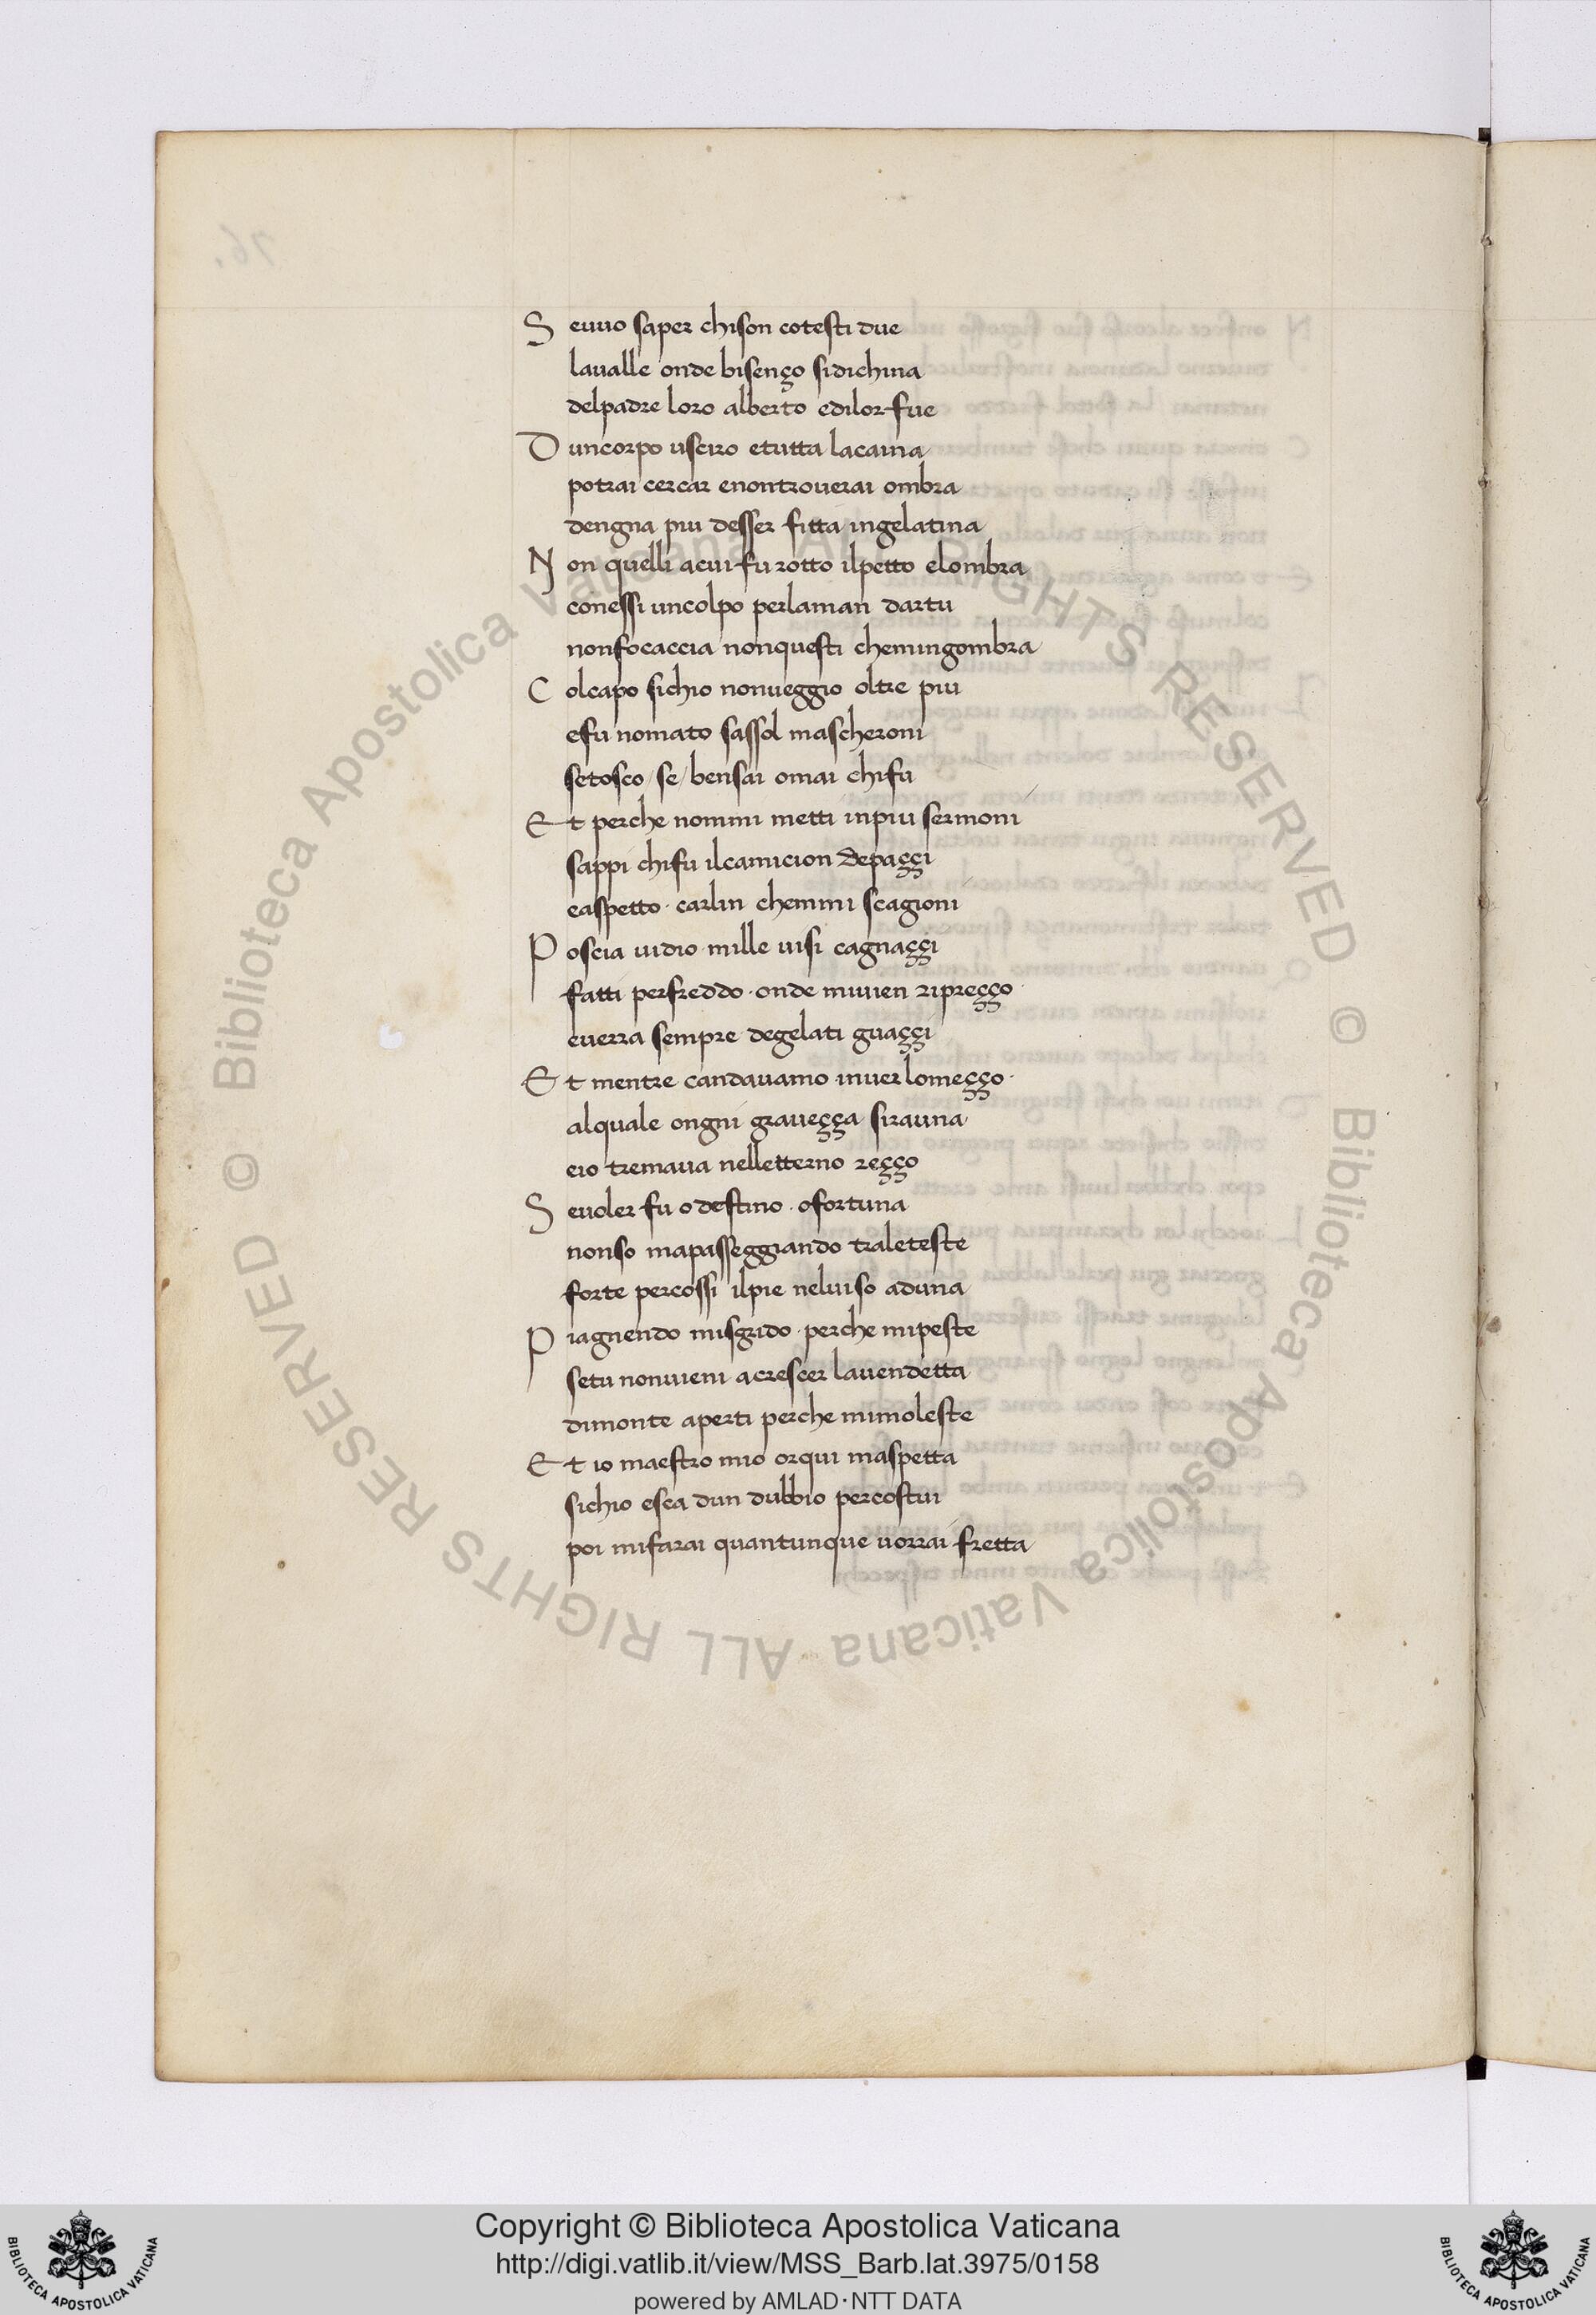 S euuo saper chison cotesti due
laualle onde bisenço sidichina
delpadre loro alberto edilor fue
D uncorpo usciro etutta lacaina
potrai cercar enontrouerai ombra
dengna piu desser fitta ingelatina
N on quelli acui fu rotto ilpetto elombra
conessi uncolpo perlaman dartu
nonfocaccia nonquesti chemingombra
C olcapo sichio nonueggio oltre piu
efu nomato sassol mascheroni
setosco / se / bensai omai chifu
E t perche nommi metti inpiu sermoni
sappi chifu ilcamicion depaççi
easpetto · carlin chemmi scagioni
P oscia uidio · mille uisi cagnaççi
fatti perfreddo · onde miuien ripreçço ·
euerra sempre degelati guaççi
E t mentre candauamo inuer lomeçço ·
alquale ongni graueçça sirauna
eio tremaua nelletterno reçço
S euoler fu o destino · ofortuna
nonso mapasseggiando traleteste
forte percossi ilpie neluiso aduna
P iagnendo misgrido · perche mipeste
setu nonuieni acrescer lauendetta
dimonte aperti perche mimoleste
E t io maestro mio orqui maspetta
sichio esca dun dubbio percostui
poi mifarai quantunque uorrai fretta
Copyright © Biblioteca Apostolica Vaticana
http://digi.vatlib.it/view/MSS_Barb.lat.3975/0158
powered by AMLAD·NTT DATA
BIBLIOTECA APOSTOLICA VATICANA
BIBLIOTECA APOSTOLICA VATICANA
© Biblioteca Apostolica Vaticana ALL RIGHTS RESERVED © Biblioteca Apostolica Vaticana ALL RIGHTS RESERVED